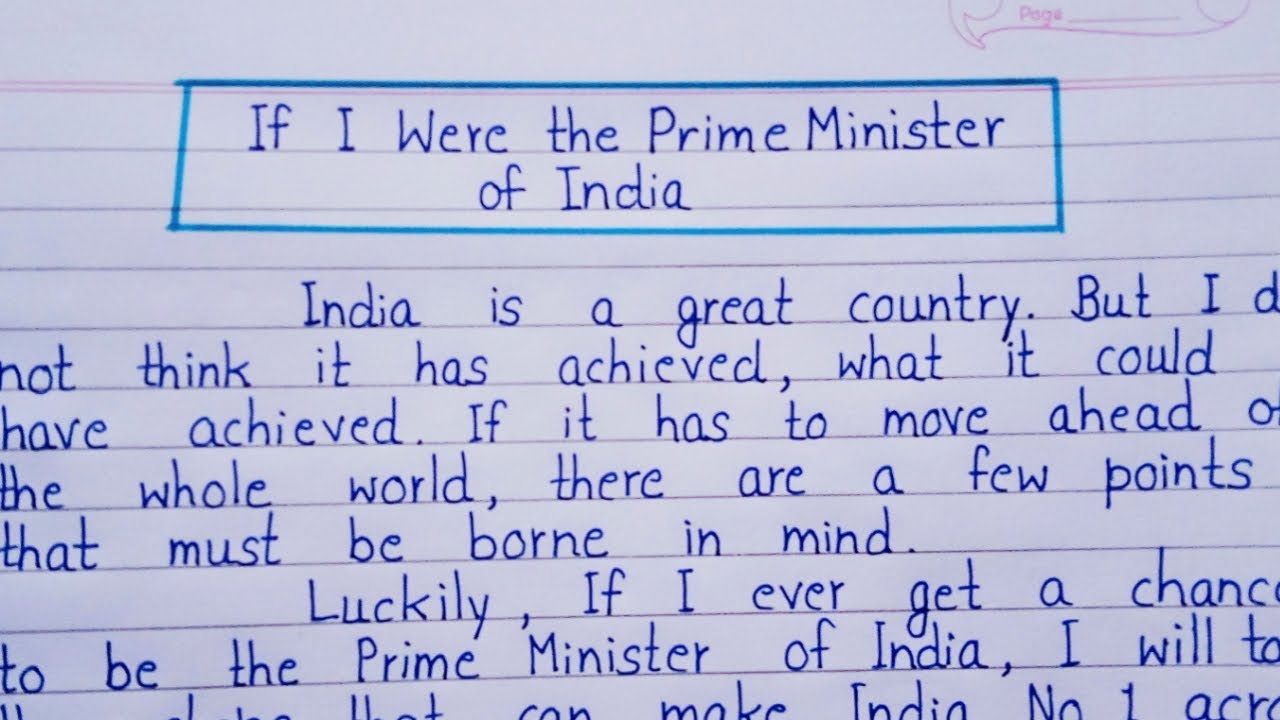 Page
If I Were the Prime Minister
of India
India is a great country. But I d
not think it has achieved, what it could
have achieved. If it has to move ahead of
the whole world, there are a few points
that must be borne in mind.
Luckily, If I ever get a chance
to be the Prime Minister of India, I will to
that can make India No 1 acro